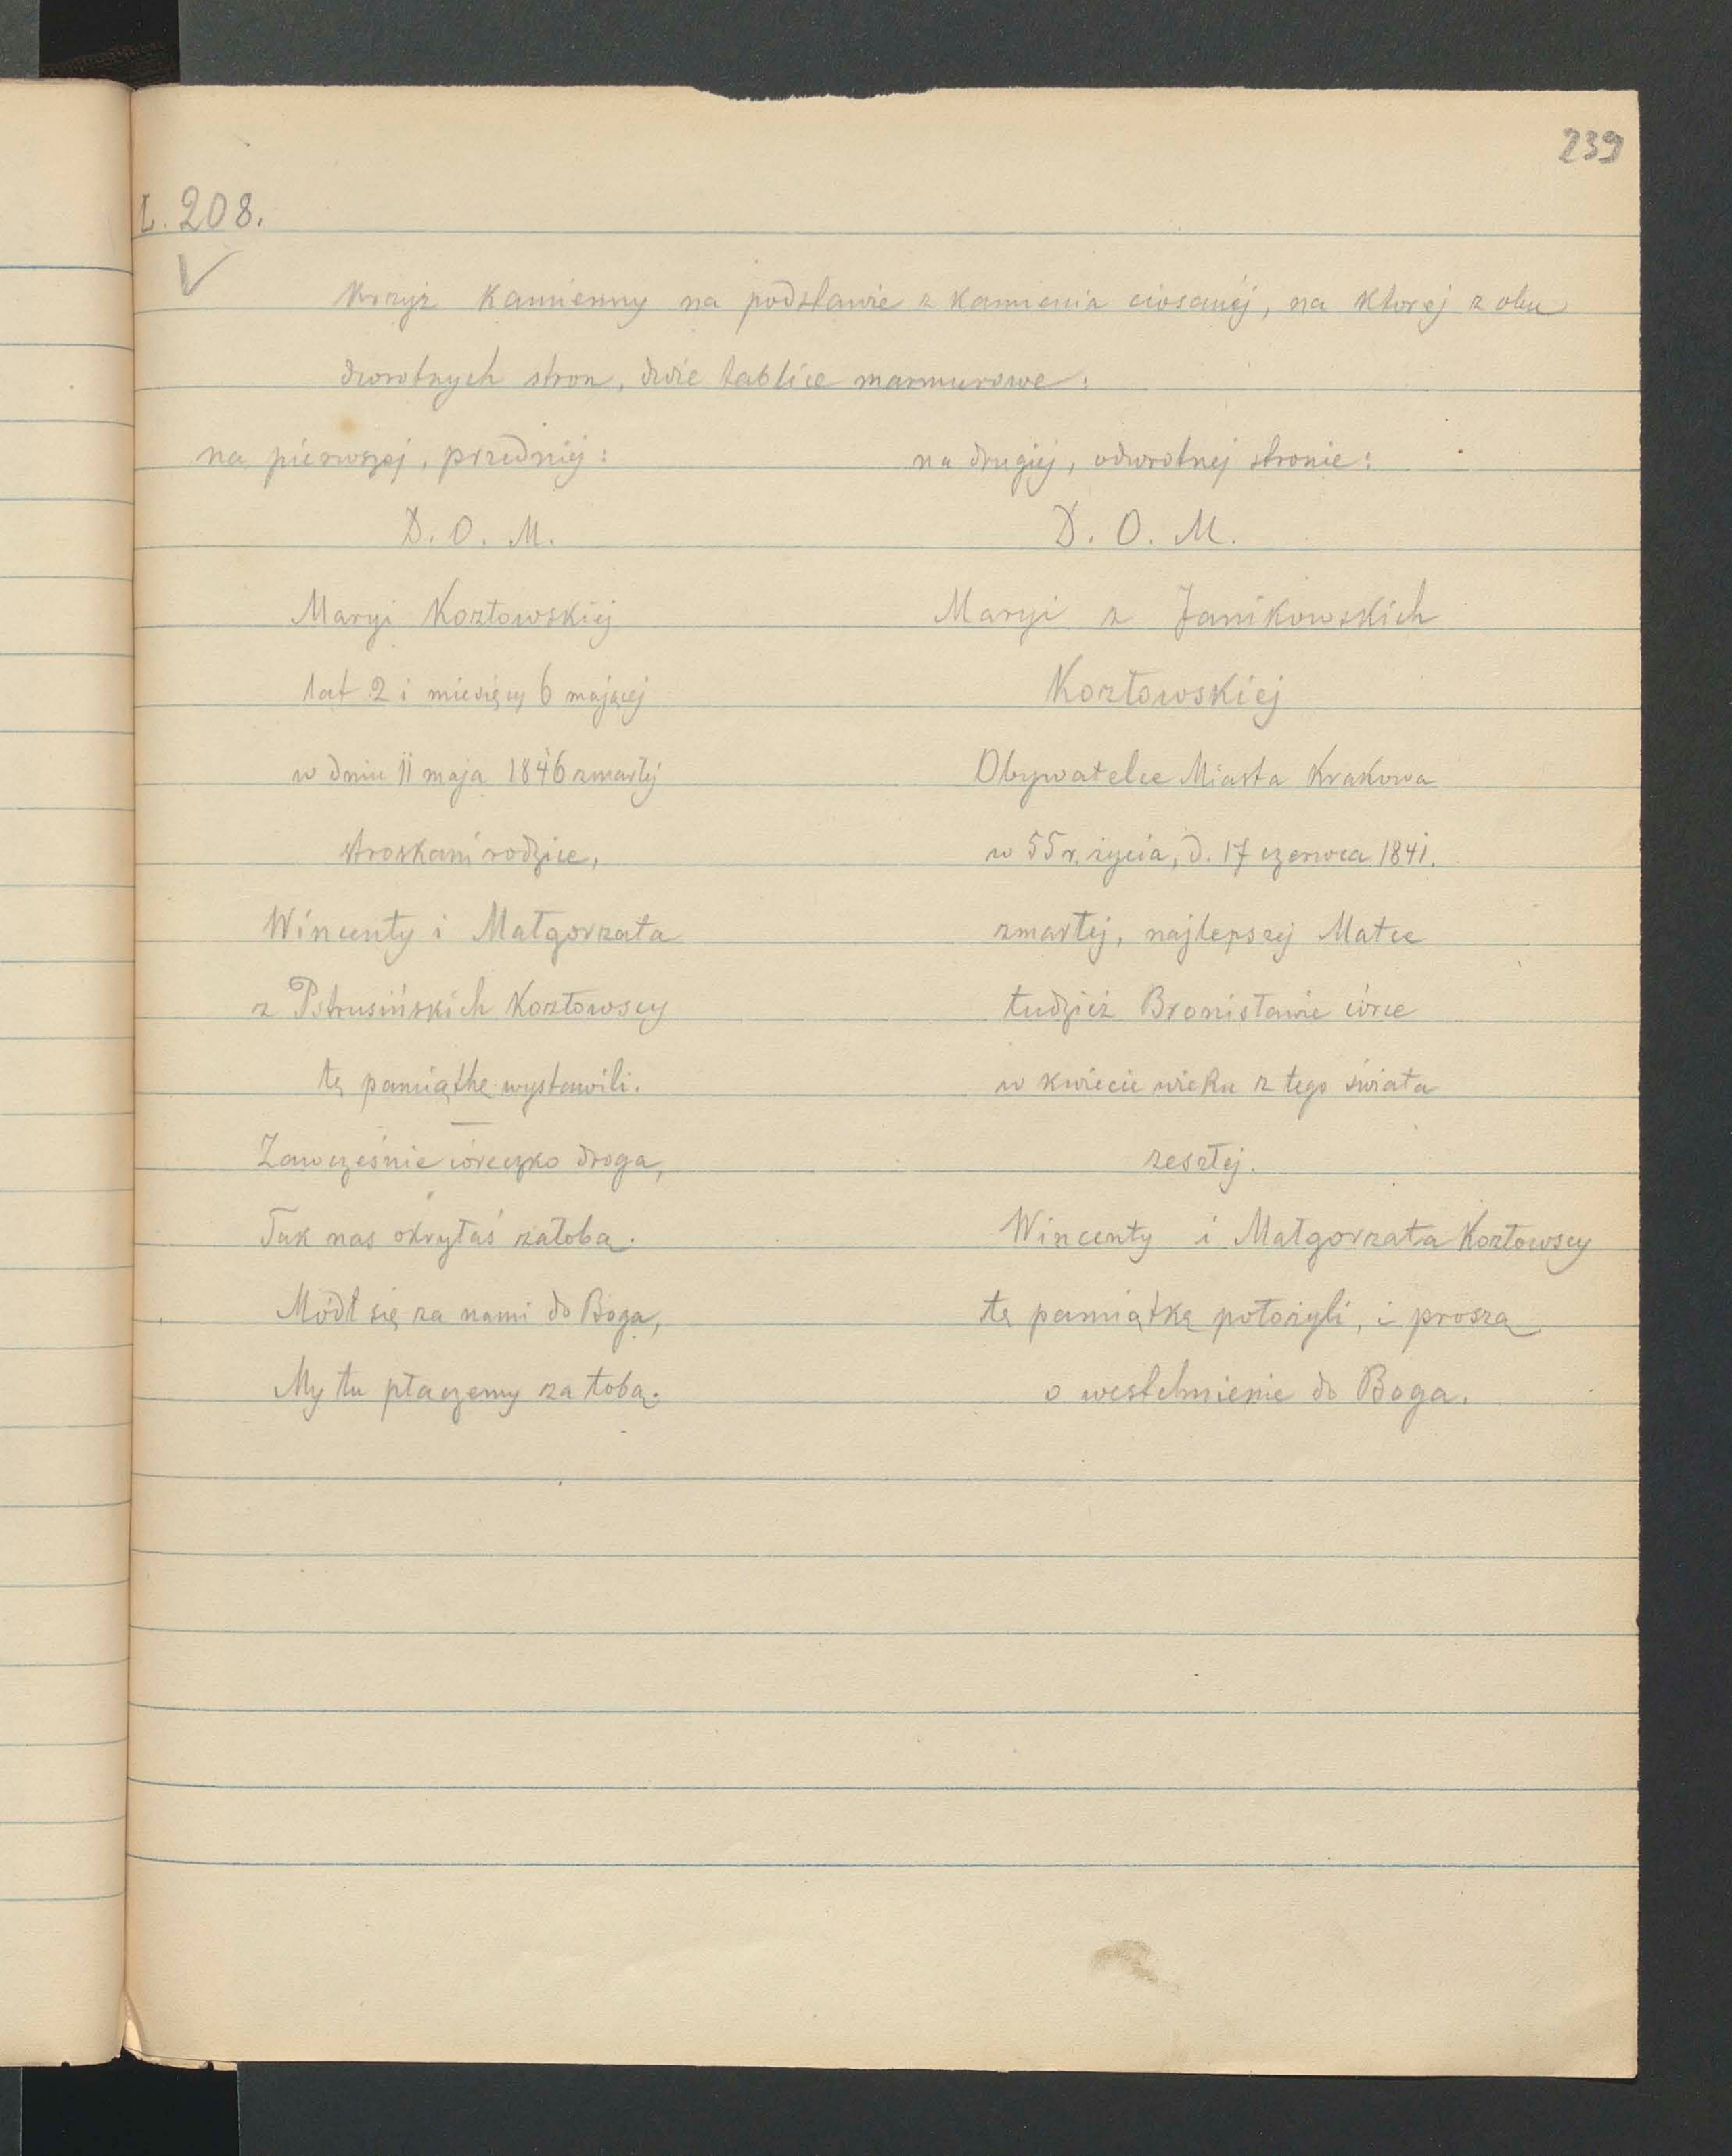 239
L. 208.
Krzyż kamienny na podstawie z kamienia ciosanéj, na ktorej z obu
dwrotnych stron, dwie tablice marmurowe:
na pierwszej, przedniéj:
D. O. M.
Maryi Kozłowskiéj
lat 2 i miesięcy 6 mającej
w dniu 11 maja 1846 zmarłéj
stroskani rodzice,
Wincenty i Małgorzata
z Pstrusińskich Kozłowscy
tę pamiątkę wystawili.
Zawcześnie córeczko droga,
Tak nas okryłaś żałobą.
Módl się za nami do Boga,
My tu płaczemy za tobą.
na drugiéj, odwrotnej stronie:
D. O. M.
Maryi z Janikowskich
Kozłowskiej
Obywatelce Miasta Krakowa
w 55 r. życia, d. 17 czerwca 1841.
zmarłéj, najlepszéj Matce
tudzież Bronisławie córce
w kwiecie wieku z tego świata
zeszłéj.
Wincenty i Małgorzata Kozłowscy
tę pamiątkę położyli, i proszą
o westchnienie do Boga.